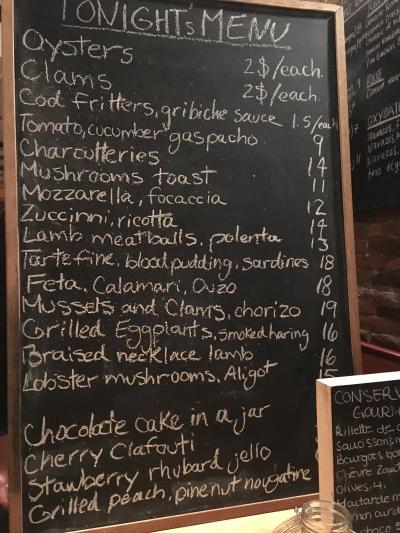 TONIGHT'S MENU
Oysters 2$/each.
Clams 2$/each.
Cod fritters, gribiche sauce 1.5/each
Tomato, cucumber gaspacho 9
Charcutteries 14
Mushrooms toast 11
Mozzarella, focaccia 12
Zuccinni, ricotta 14
Lamb meatballs, polenta 13
Tarte fine, blood pudding, sardines 18
Feta, Calamari, Ouzo 18
Mussets and Clams, chorizo 19
Grilled Eggplants, smoked haring 16
Braised necklace lamb 16
Lobster mushrooms, Aligot 15
Chocolate cake in a jar
Cherry Clafouti
Stawberry rhubard jello
Grilled peach, pine nut nougatine
CONSERV
GOURM
Rillette de
Saucissons
Bourgots
Chèvre
Olives. 4.
Moutarde m
choco
OXYDA
Navazos,
Navazos,
Navazos,